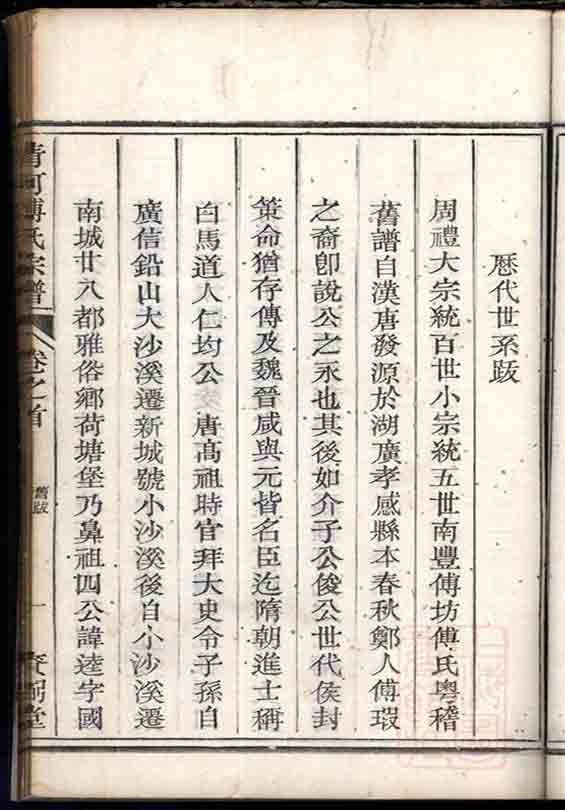 歷代世系跋
周禮大宗統百世小宗統五世南豐傅坊傅氏粵稽
舊譜自漢唐發源於湖廣孝感縣本春秋鄭人傅瑕
之裔卽說公之永也其後如介子公俊公世代侯封
策命猶存傳及魏晉咸與元皆名臣迄隋朝進士稱
白馬道人仁均公 唐高祖時官拜大史令子孫自
廣信鉛山大沙溪遷新城號小沙溪後自小沙溪遷
南城廿八都雅俗鄉荷塘堡乃鼻祖四公諱逵字國
清河傅氏宗譜 卷之首 舊跋 一